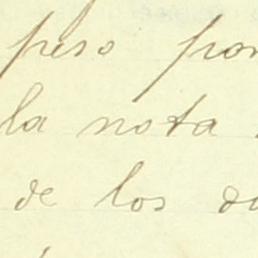 peso por
la nota
de los